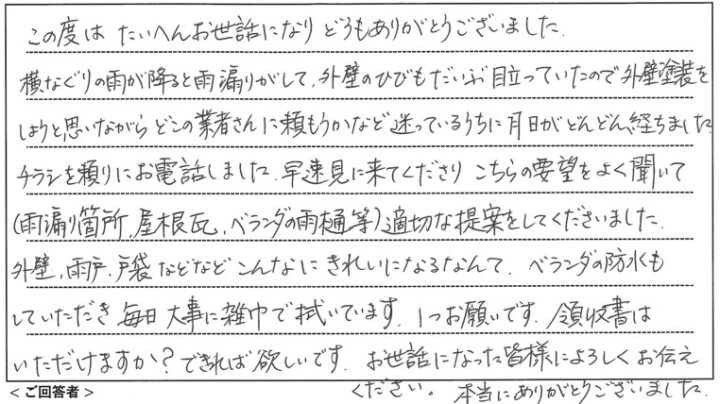 この度は たいへんお世話になり どうもありがとうございました.
横なぐりの雨が降ると雨漏りがして、外壁のひびもだいぶ目立っていたので外壁塗装を
しようと思いながら どこの業者さんに頼もうかなど 迷っているうちに月日がどんどん経ちました
チラシを頼りにお電話しました. 早速見に来てくださり こちらの要望をよく聞いて
(雨漏り箇所、屋根瓦、ベランダの雨樋等)適切な提案をしてくださいました.
外壁、雨戸、戸袋などなど こんなに きれいになるなんて、ベランダの防水も
していただき 毎日 大事に雑巾で拭いています. 1つお願いです. 領収書は
いただけますか?できれば欲しいです. お世話になった皆様によろしくお伝え
ください。 本当にありがとうございました.
<ご回答者>